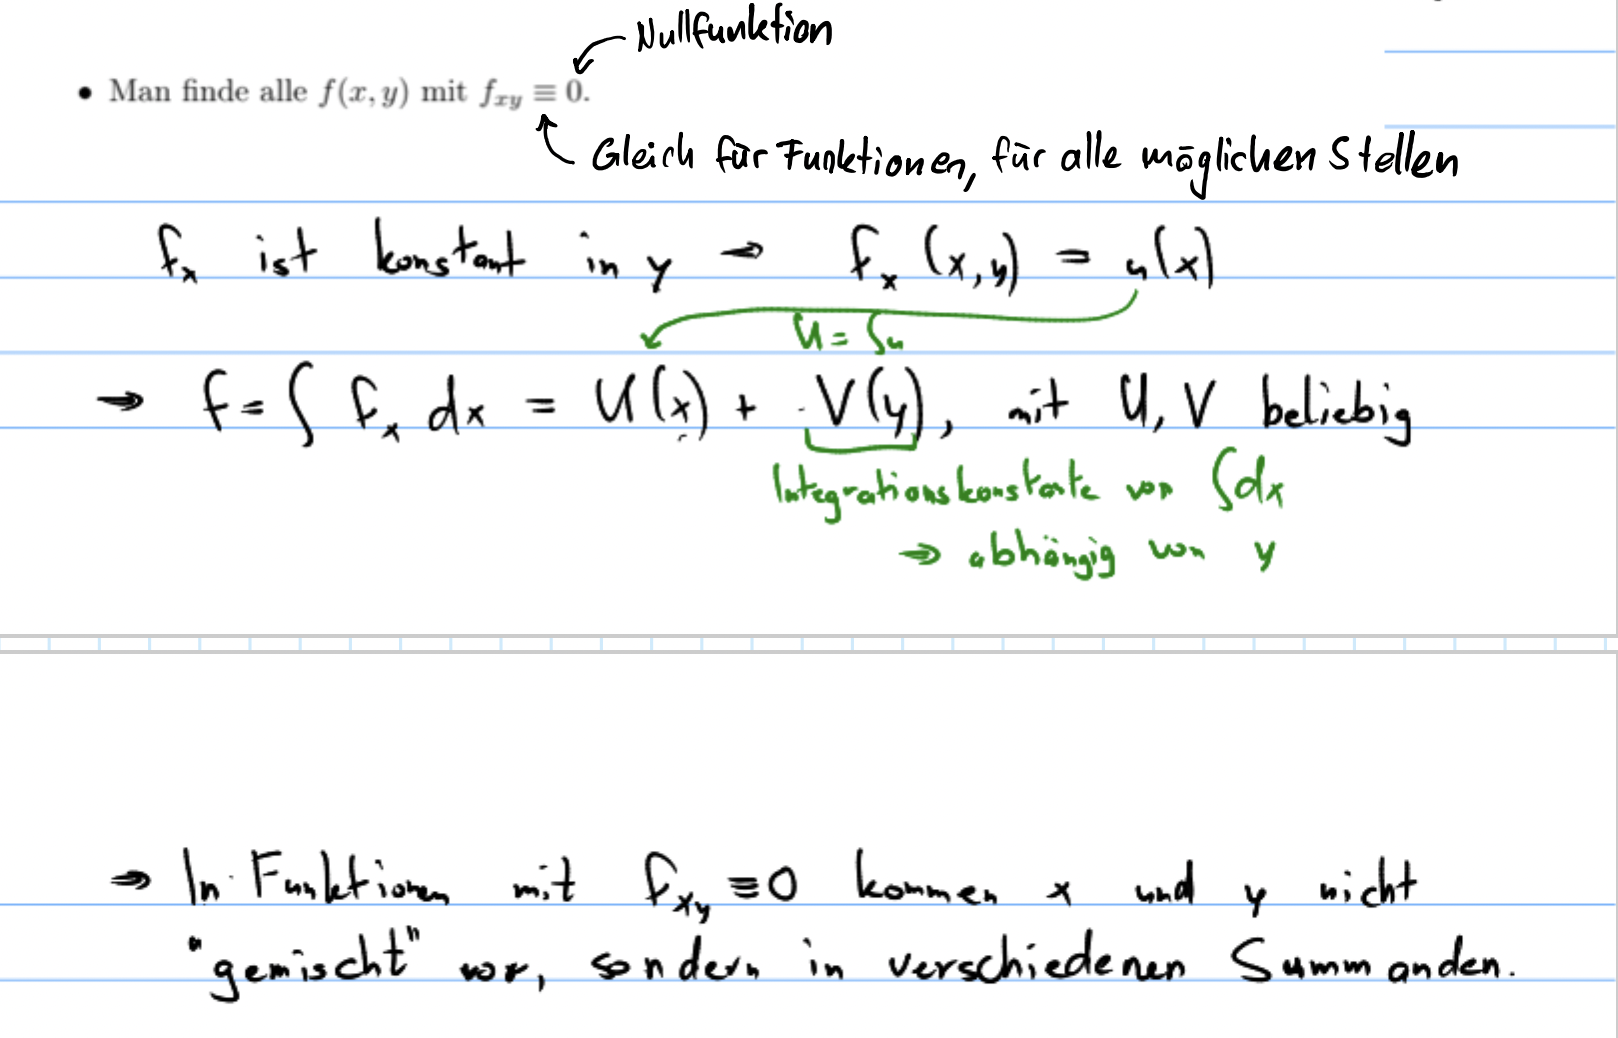 Nullfunktion
• Man finde alle f(x, y) mit f_xy ≡ 0.
Gleich für Funktionen, für alle möglichen Stellen
f_x ist konstant in y → f_x (x,y) = u(x)
U = ∫u
→ f = ∫ f_x dx = U(x) + V(y), mit U, V beliebig
Integrationskonstante von ∫dx
→ abhängig von y
→ In Funktionen mit f_xy ≡ 0 kommen x und y nicht
"gemischt" vor, sondern in verschiedenen Summanden.